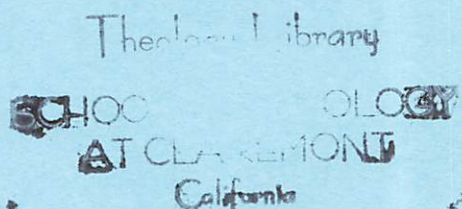 Theology Library
SCHOO OLOGY
AT CLAREMONT
California